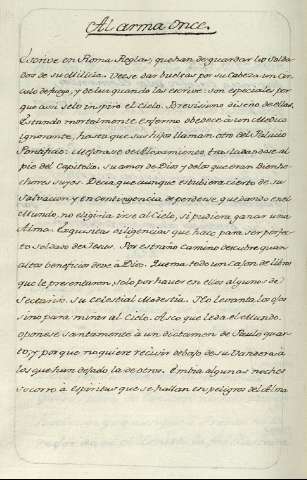 Al arma once.
Escrive en Roma Reglas, que han de guardar los Solda
dos de su Milizia. Veese dar bueltas por su Cabeza un Cir
culo de fuego, y de luz quando las escrive: son especiales por
que assi se lo inspiro el Cielo. Brevissimo diseño de ellas.
Estando mortalmente enfermo obedece à un Medico
ignorante, hasta que sus hijos llaman otro del Palacio
Pontificio. Mejorase de Alojamiento, trasladandose al
pie del Capitolio. Su amor de Dios y de los que eran Bienhe
chores suyos. Decia, que aunque estubiera cierto de su
Salvacion y en contingencia de perderse, quedando en el
Mundo, no eligiria irse al Cielo, si pudiera ganar una
Alma. Exquisitas diligencias que hace para ser perfec
to soldado de Jesus. Por estraño camino descubre quan
altos beneficios deve à Dios. Quema todo un Caxon de libros
que le presentaron, solo por haver en ellos alguno de
Sectarios. Su celestial Modestia. No levanta los ojos
sino para mirar al Cielo. Asco que le da el Mundo.
Oponese santamente à un dictamen de Paulo quar
to, y por que no quiere recivir debajo de su Vandera à
los que han dejado la de otros. Embia algunas noches
socorro à espiritus que se hallan en peligro del Alma